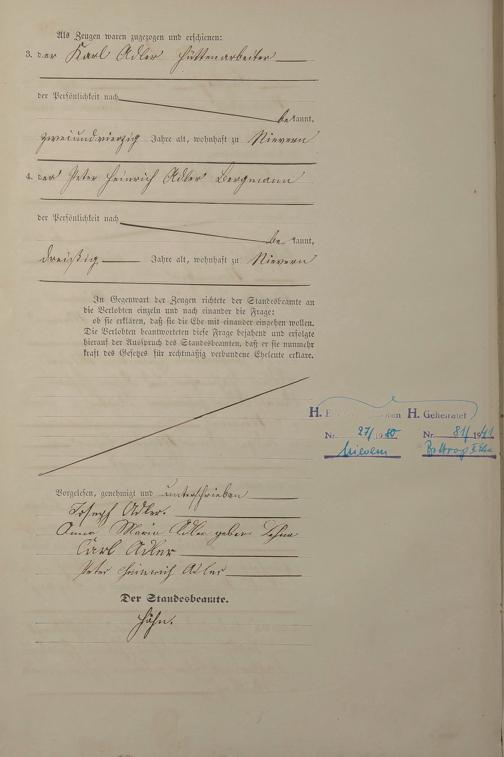 Als Zeugen waren zugezogen und erschienen:
3. der Karl Adler Hüttenarbeiter
der Persönlichkeit nach
bekannt,
zweiundvierzig Jahre alt, wohnhaft zu Nievern
4. der Peter Heinrich Adler Bergmann
der Persönlichkeit nach
be kannt,
dreißig Jahre alt, wohnhaft zu Nievern
In Gegenwart der Zeugen richtete der Standesbeamte an
die Verlobten einzeln und nach einander die Frage:
ob sie erklären, daß sie die Ehe mit einander eingehen wollen.
Die Verlobten beantworteten diese Frage bejahend und erfolgte
hierauf der Ausspruch des Standesbeamten, daß er sie nunmehr
kraft des Gesetzes für rechtmäßig verbundene Eheleute erkläre.
H. H. Geheiratet
Nr. 27/19 Nr. 81/1941
Vorgelesen, genehmigt und unterschrieben
Joseph Adler.
Anna Maria Adler geborene
Karl Adler
Peter Heinrich Adler
Der Standesbeamte.
Höhn.